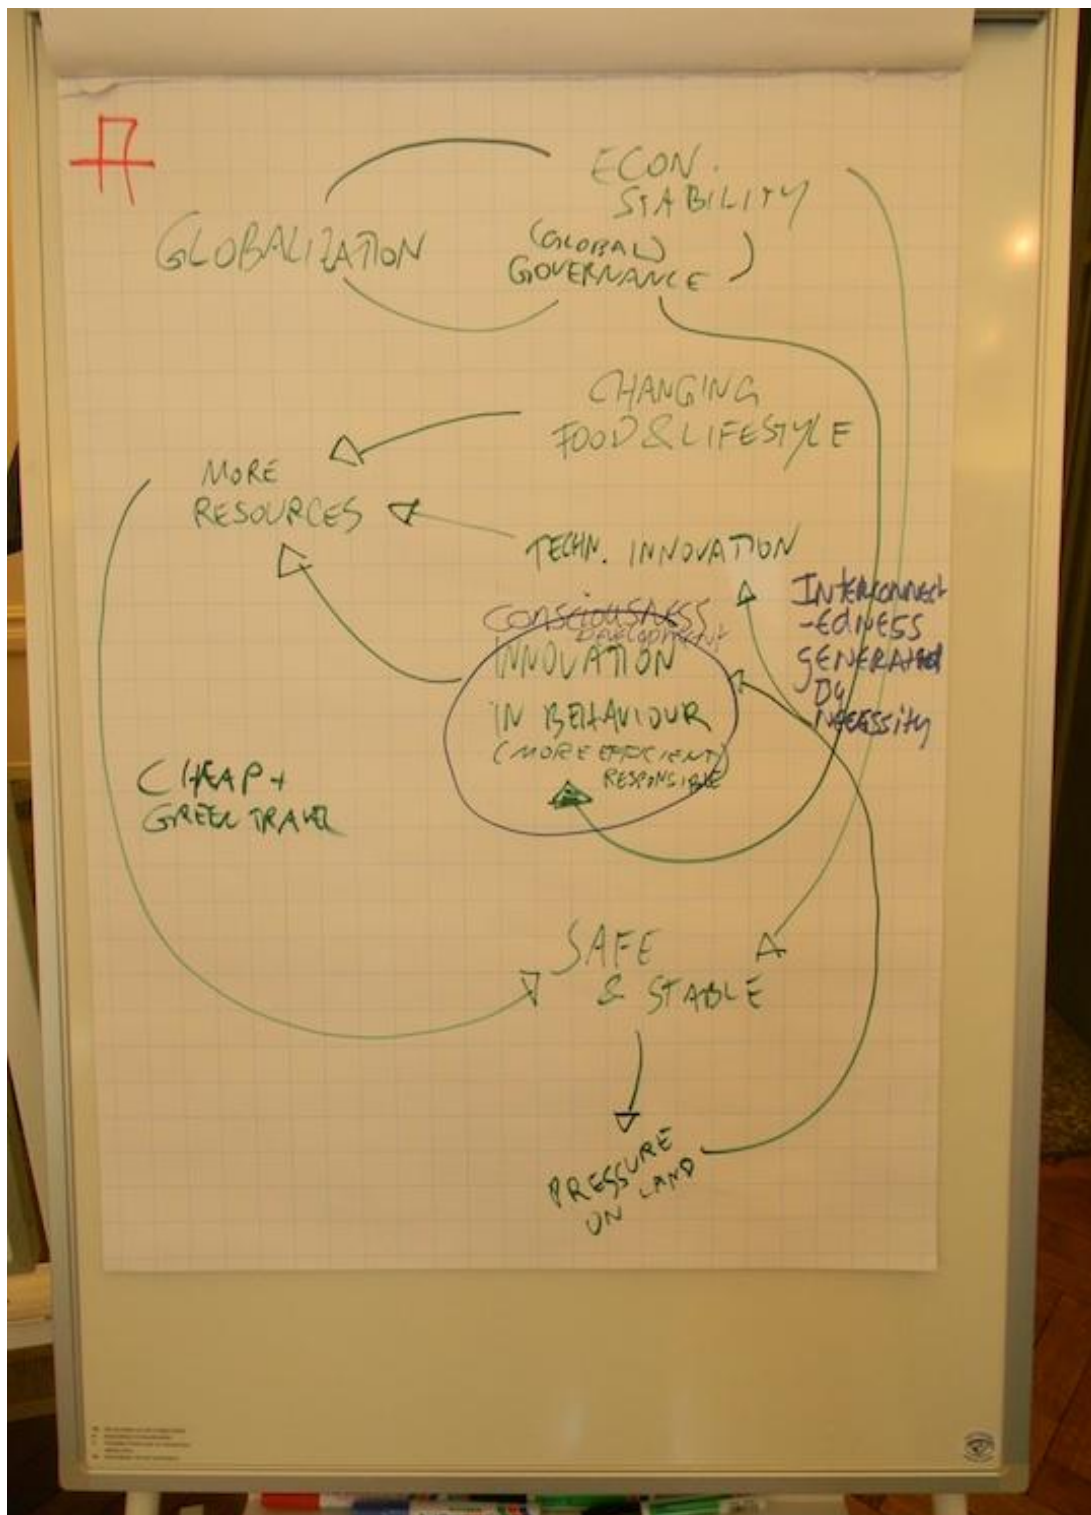 A
ECON.
STABILITY
GLOBALIZATION
(GLOBAL)
GOVERNANCE
CHANGING
FOOD & LIFESTYLE
MORE
RESOURCES
TECHN. INNOVATION
INTERCONNECT
-EDNESS
GENERATED
BY
NECESSITY
CONSCIOUSNESS
DEVELOPMENT
INNOVATION
IN BEHAVIOUR
(MORE EFFICIENT/
RESPONSIBLE
CHEAP +
GREEN TRAVEL
SAFE
& STABLE
PRESSURE
ON LAND